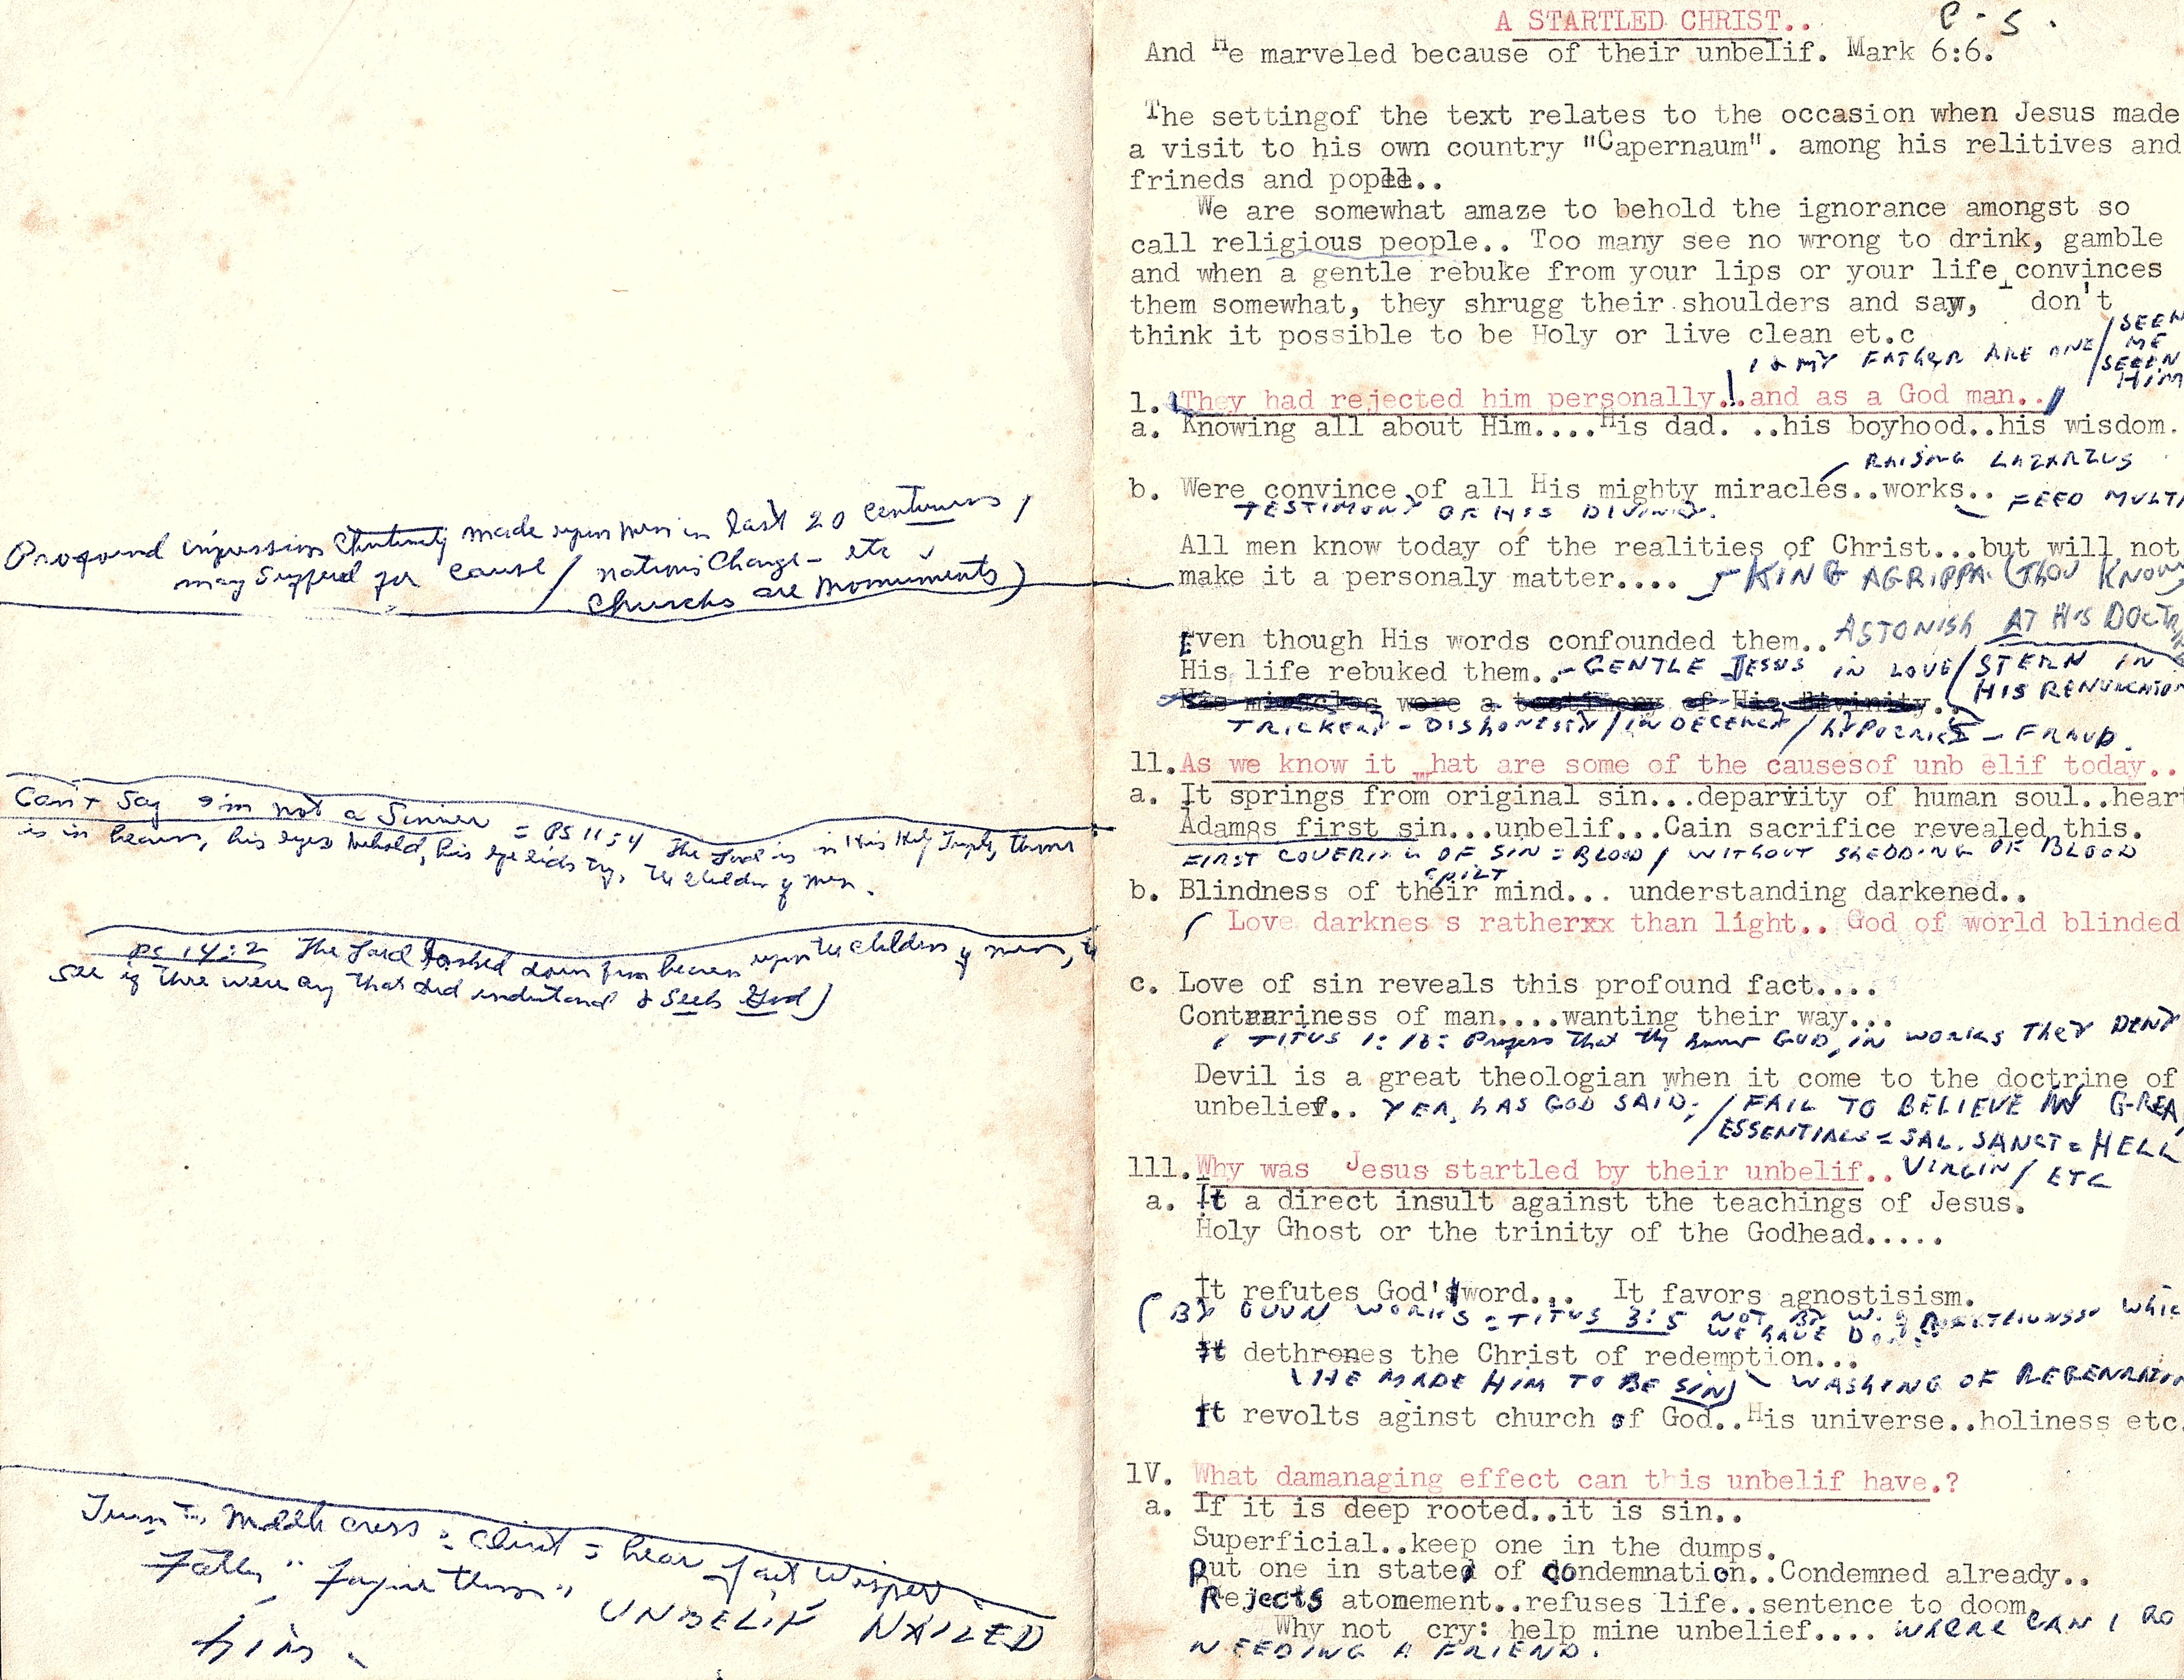 Profound impression Christianity made upon men in last 20 centuries /
may suffered for cause / nations Change - etc
Churchs are Monuments)
Can't Say I'm not a Sinner = PS 11:4 The Lord is in His Holy Temple, throne
is in heaven, his eyes behold, his eye lids try, the children of men.
PS 14:2 The Lord looked down from heaven upon the children of men, to
see if there were any that did understand & seek God)
Turn to Middle cross = Christ = hear faint Wisper
Father "forgive them" UNBELIF NAILED
him.
A STARTLED CHRIST.. C - S .
And He marveled because of their unbelif. Mark 6:6.
The settingof the text relates to the occasion when Jesus made
a visit to his own country "Capernaum". among his relitives and
frineds and
We are somewhat amaze to behold the ignorance amongst so
call religious people.. Too many see no wrong to drink, gamble
and when a gentle rebuke from your lips or your life convinces
them somewhat, they shrugg their shoulders and say, I don't
think it possible to be Holy or live clean et.c
I & MY FATHER ARE ONE / SEEN
ME
SEEEN
HIM
1. They had rejected him personally...and as a God man..
a. Knowing all about Him....His dad. ..his boyhood..his wisdom.
RAISING LAZARZUS
b. Were convince of all His mighty miracles..works.. FEED MULTI
TESTIMONY OF HIS DIVINITY.
All men know today of the realities of Christ...but will not
make it a personaly matter.... KING AGRIPPA. (THOU KNOW
Even though His words confounded them.. ASTONISH AT HIS DOCTR
His life rebuked them.. - GENTLE JESUS IN LOVE / STERN IN
HIS RENUNCIATION
His miracles were a testimony of His Divinity..
TRICKERY - DISHONESTY / INDECENCY / HYPOCRICY - FRAUD.
11. As we know it what are some of the causesof unb elif today..
a. It springs from original sin...deparvity of human soul..heart
Adamgs first sin...unbelif...Cain sacrifice revealed this.
FIRST COVERING OF SIN = BLOOD / WITHOUT SHEDDING OF BLOOD
SPILT
b. Blindness of their mind... understanding darkened..
( Love darknes s ratherxx than light.. God of world blinded
c. Love of sin reveals this profound fact....
Contrrariness of man....wanting their way...
( TITUS 1:16: Profess that thy know GOD, IN WORKS THEY DENY
Devil is a great theologian when it come to the doctrine of
unbelief.. YEA, HAS GOD SAID; / FAIL TO BELIEVE IN GREA
/ ESSENTIALS = SAL. SANCT = HELL
111. Why was Jesus startled by their unbelif.. VIRGIN / ETC
a. It a direct insult against the teachings of Jesus.
Holy Ghost or the trinity of the Godhead.....
It refutes God's word... It favors agnostisism.
(BY OUWN WORKS = TITUS 3:5 NOT BY W. of WHIC
WE HAVE DONE
It dethrones the Christ of redemption...
(HE MADE HIM TO BE SIN) WASHING OF REGENRATION
It revolts aginst church of God..His universe..holiness etc.
1V. What damanaging effect can this unbelif have.?
a. If it is deep rooted..it is sin..
Superficial..keep one in the dumps.
Put one in state of condemnation..Condemned already..
Rejects atonement..refuses life..sentence to doom.
Why not cry: help mine unbelief.... WHERE CAN I GO
NEEDING A FRIEND.